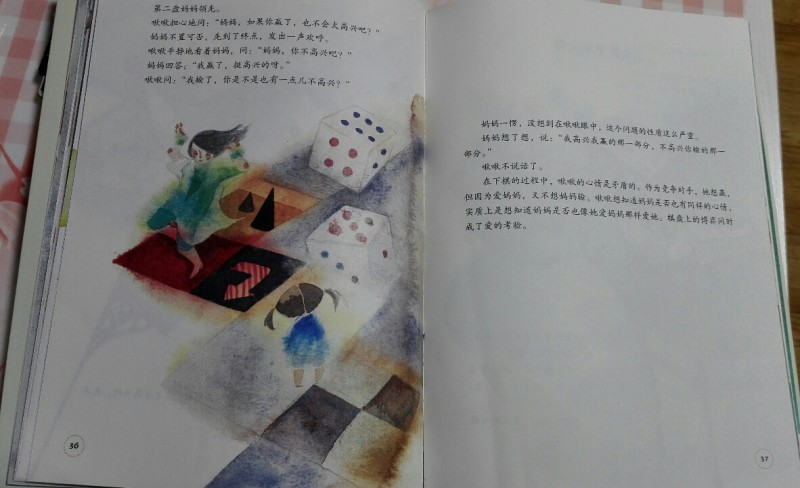 第二盘妈妈领先。
啾啾担心地问：“妈妈，如果你赢了，也不会太高兴吧？”
妈妈不置可否，先到了终点，发出一声欢呼。
啾啾平静地看着妈妈，问：“妈妈，你不高兴吧？”
妈妈回答：“我赢了，挺高兴的呀。”
啾啾问：“我输了，你是不是也有一点儿不高兴？”
36
妈妈一愣，没想到在啾啾眼中，这个问题的性质这么严重。
妈妈想了想，说：“我高兴我赢的那一部分，不高兴你输的那一
部分。”
啾啾不说话了。
在下棋的过程中，啾啾的心情是矛盾的。作为竞争对手，她想赢，
但因为爱妈妈，又不想妈妈输。啾啾想知道妈妈是否也有同样的心情，
实质上是想知道妈妈是否也像她爱妈妈那样爱她。棋盘上的博弈同时
成了爱的考验。
37